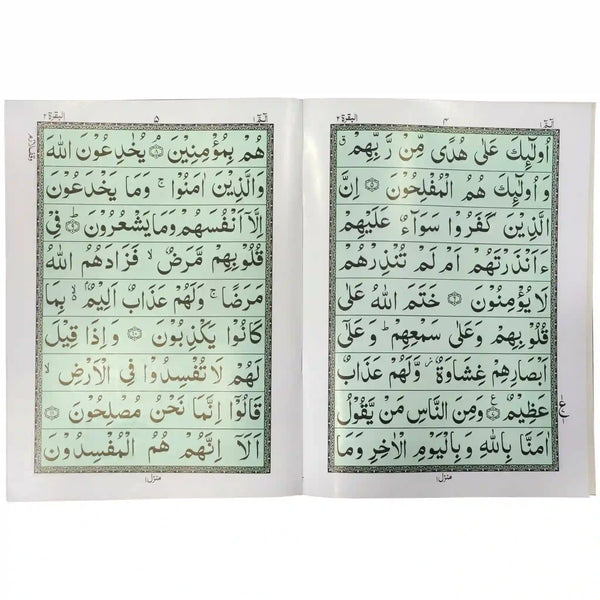 الٓمّٓ ١
٤
البقرة ٢
اُولٰٓئِكَ عَلٰى هُدًى مِّنْ رَّبِّهِمْ ق
وَ اُولٰٓئِكَ هُمُ الْمُفْلِحُوْنَ ۝٥ اِنَّ
الَّذِيْنَ كَفَرُوْا سَوَآءٌ عَلَيْهِمْ
ءَاَنْذَرْتَهُمْ اَمْ لَمْ تُنْذِرْهُمْ
لَا يُؤْمِنُوْنَ ۝٦ خَتَمَ اللّٰهُ عَلٰى
قُلُوْبِهِمْ وَعَلٰى سَمْعِهِمْ ط وَعَلٰٓى
اَبْصَارِهِمْ غِشَاوَةٌ ز وَّلَهُمْ عَذَابٌ
عَظِيْمٌ ۝٧ ع وَمِنَ النَّاسِ مَنْ يَّقُوْلُ
اٰمَنَّا بِاللّٰهِ وَ بِالْيَوْمِ الْاٰخِرِ وَمَا
منزل ١
الٓمّٓ ١
٥
البقرة ٢
هُمْ بِمُؤْمِنِيْنَ ۝٨ يُخٰدِعُوْنَ اللّٰهَ
وَالَّذِيْنَ اٰمَنُوْا ج وَمَا يَخْدَعُوْنَ
اِلَّآ اَنْفُسَهُمْ وَمَا يَشْعُرُوْنَ ط ۝٩ فِيْ
قُلُوْبِهِمْ مَّرَضٌ لا فَزَادَهُمُ اللّٰهُ
مَرَضًا ج وَلَهُمْ عَذَابٌ اَلِيْمٌ لا بِمَا
كَانُوْا يَكْذِبُوْنَ ۝١٠ وَاِذَا قِيْلَ
لَهُمْ لَا تُفْسِدُوْا فِي الْاَرْضِ لا
قَالُوْٓا اِنَّمَا نَحْنُ مُصْلِحُوْنَ ۝١١
اَلَآ اِنَّهُمْ هُمُ الْمُفْسِدُوْنَ
منزل ١